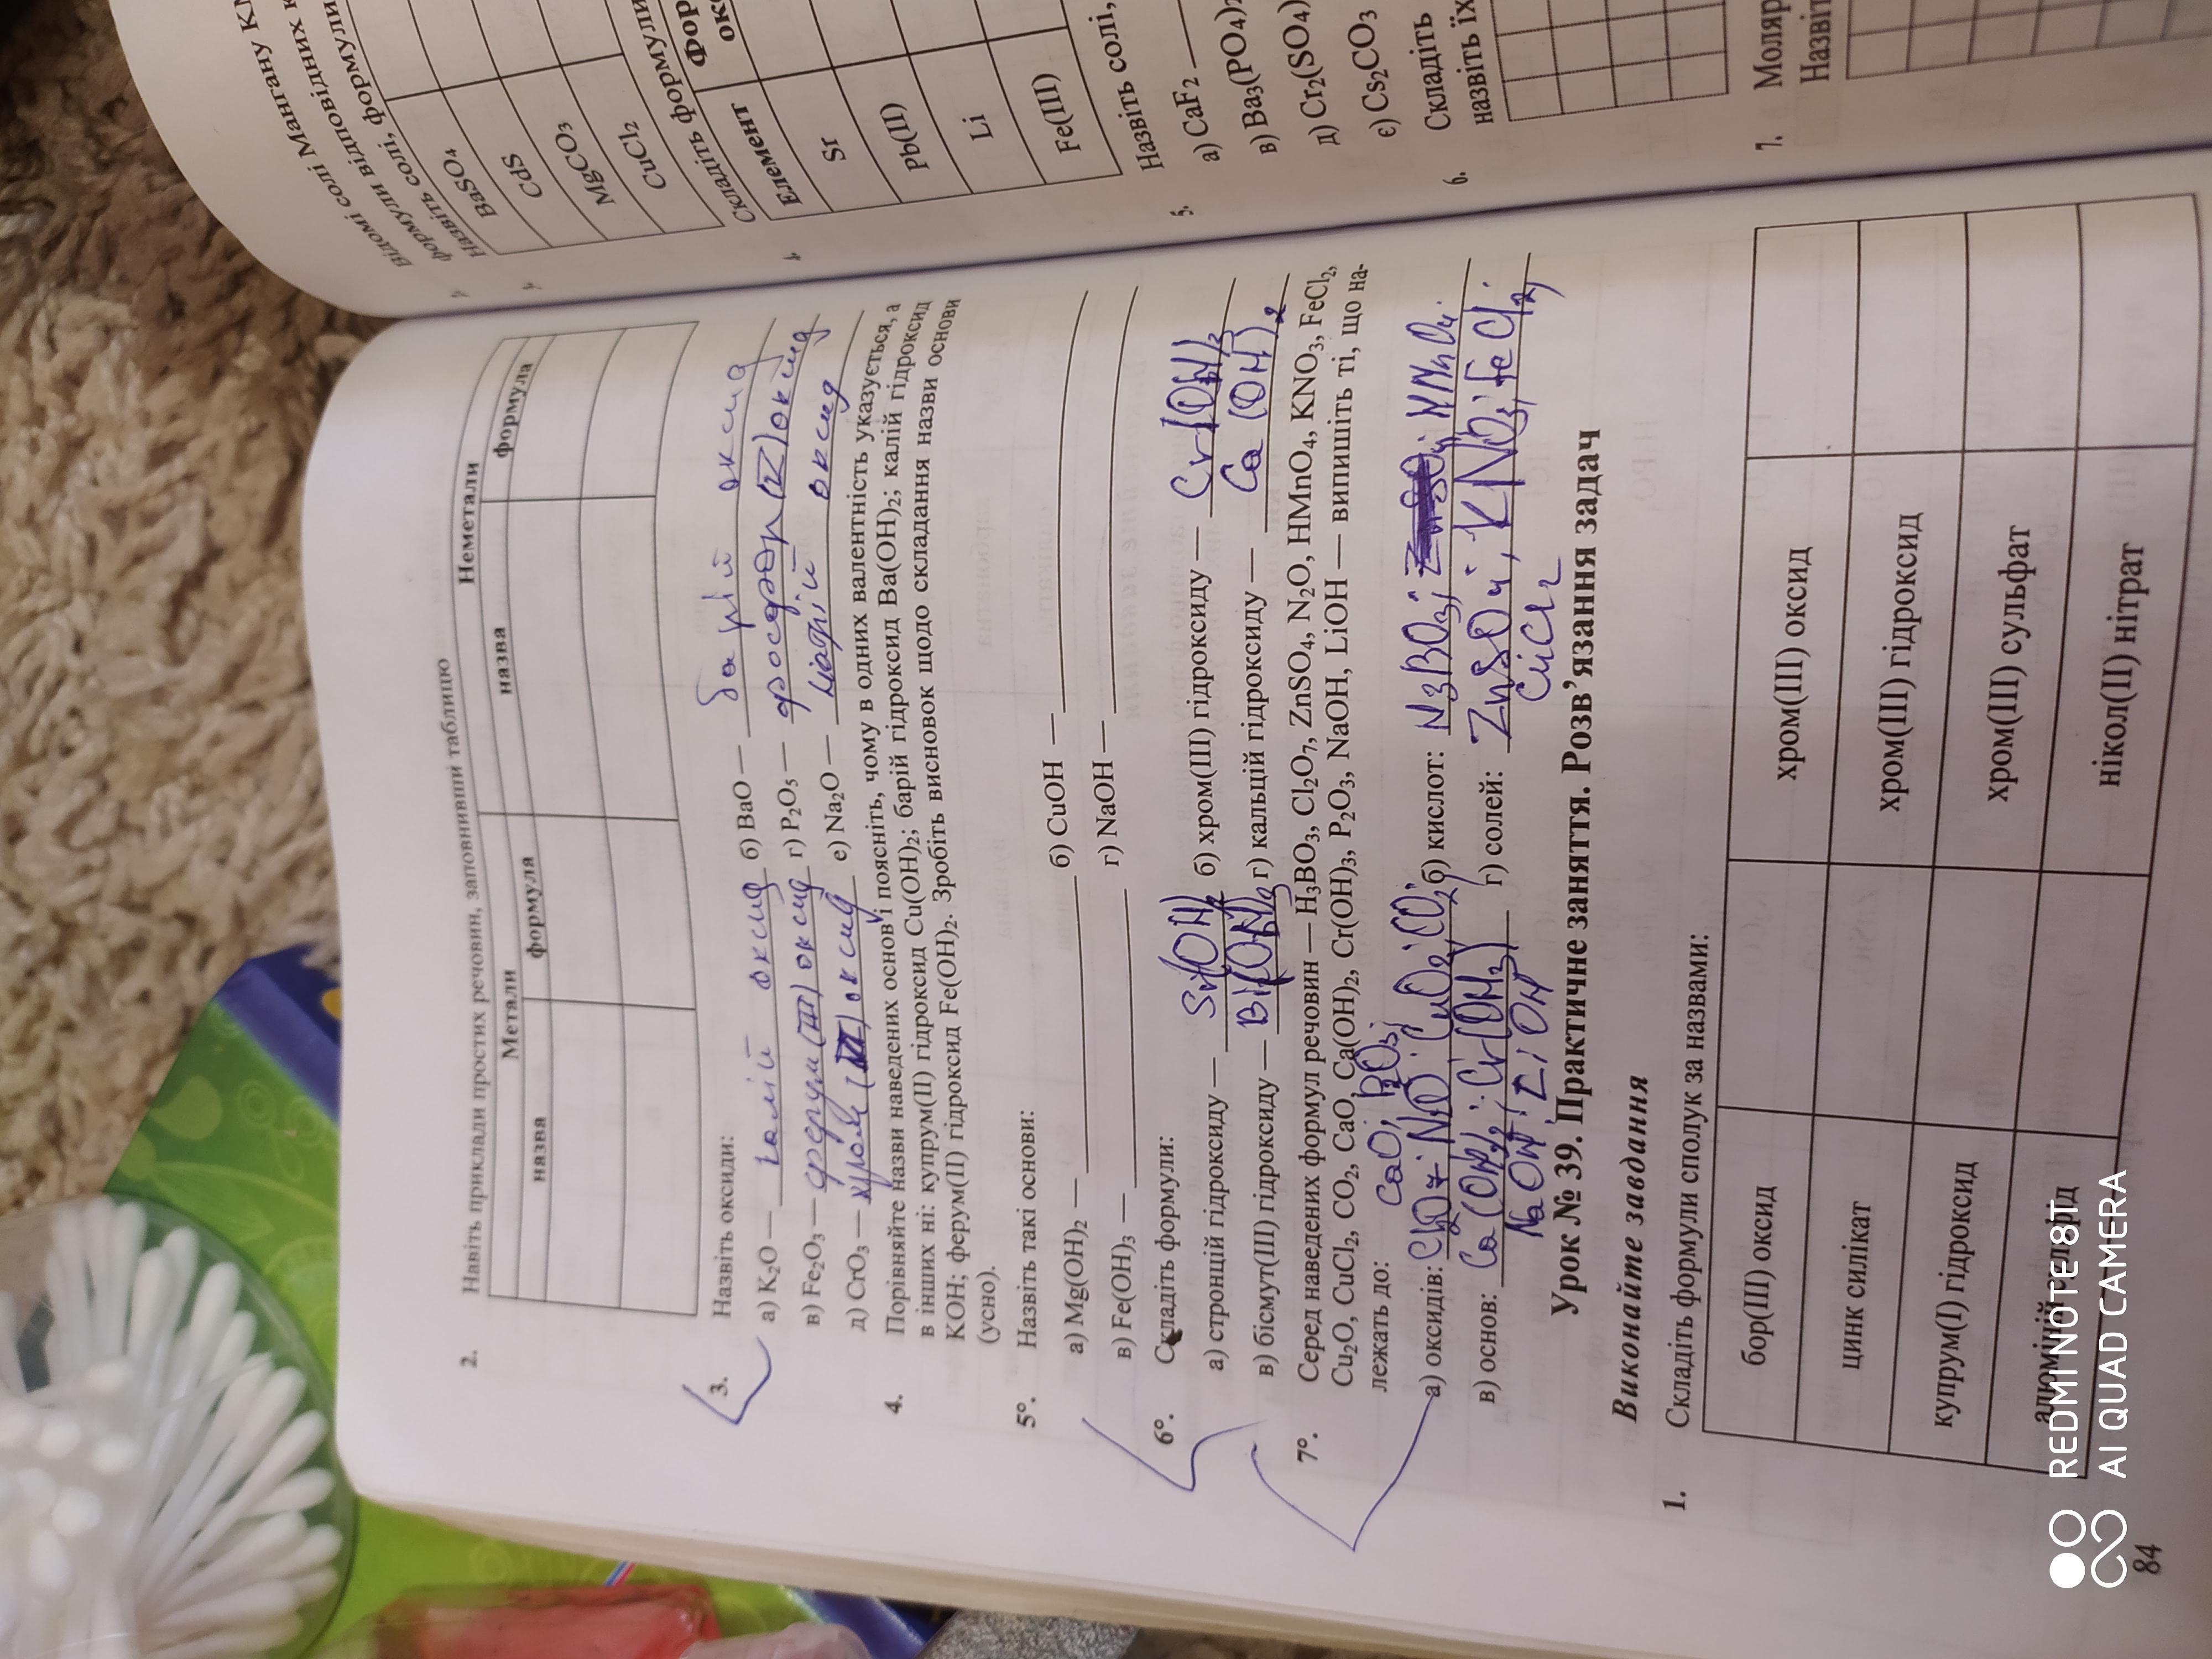 2. Навіть приклади простих речовин, заповнивши таблицю
Метали Неметали
назва формула назва формула
3. Назвіть оксиди:
а) K₂O — калій оксид б) BaO — барій оксид
в) Fe₂O₃ — ферум (III) оксид г) P₂O₅ — фосфор (V) оксид
д) CrO₃ — хром (VI) оксид е) Na₂O — натрій оксид
4. Порівняйте назви наведених основ і поясніть, чому в одних валентність указується, а
в інших ні: купрум(II) гідроксид Cu(OH)₂; барій гідроксид Ba(OH)₂; калій гідроксид
KOH; ферум(II) гідроксид Fe(OH)₂. Зробіть висновок щодо складання назви основи
(усно).
5°. Назвіть такі основи:
а) Mg(OH)₂ — б) CuOH —
в) Fe(OH)₃ — г) NaOH —
6°. Складіть формули:
а) стронцій гідроксиду — Sr(OH)₂ б) хром(III) гідроксиду — Cr(OH)₃
в) бісмут(III) гідроксиду — Bi(OH)₃ г) кальцій гідроксиду — Ca(OH)₂
7°. Серед наведених формул речовин — H₃BO₃, Cl₂O₇, ZnSO₄, N₂O, HMnO₄, KNO₃, FeCl₂,
Cu₂O, CuCl₂, CO₂, CaO, Ca(OH)₂, Cr(OH)₃, P₂O₃, NaOH, LiOH — випишіть ті, що на-
лежать до: CaO; P₂O₃;
а) оксидів: Cl₂O₇; N₂O; CuO₂; CO₂; б) кислот: H₃BO₃; HMnO₄.
в) основ: Ca(OH)₂; Cr(OH₃) г) солей: ZnSO₄; KNO₃; FeCl₂;
NaOH; LiOH CuCl₂
Урок № 39. Практичне заняття. Розв’язання задач
Виконайте завдання
1. Складіть формули сполук за назвами:
бор(III) оксид хром(III) оксид
цинк силікат хром(III) гідроксид
купрум(I) гідроксид хром(III) сульфат
алюміній нікол(II) нітрат
84
Відомі солі Мангану
формули відповідних
Назвіть солі, формули
BaSO₄
CdS
MgCO₃
CuCl₂
Складіть формули
Елемент
Sr
Pb(II)
Li
Fe(III)
5. Назвіть солі,
а) CaF₂
в) Ba₃(PO₄)₂
д) Cr₂(SO₄)
є) Cs₂CO₃
6. Складіть
назвіть їх
7. Моляр
Назвіт
REDMI NOTE 8T
AI QUAD CAMERA